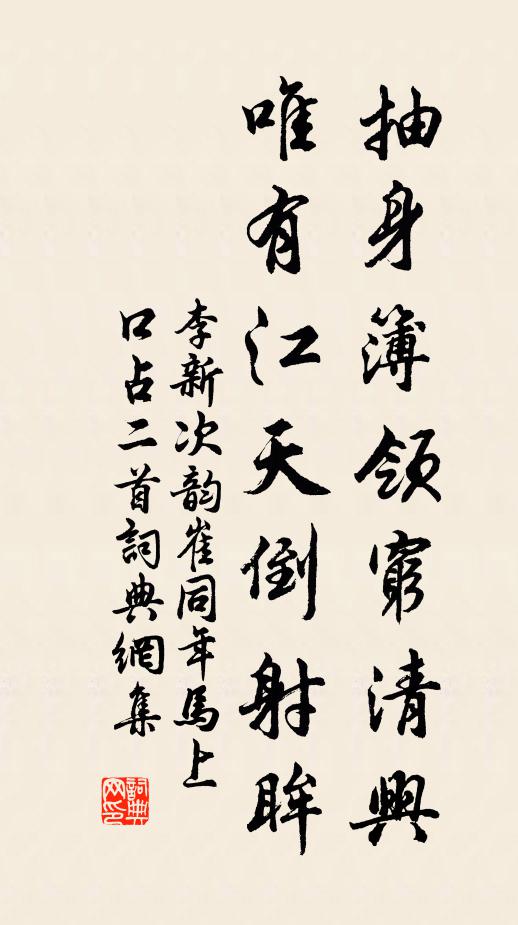 抽身簿領窮清興
唯有江天倒射眸
李新次韵崔同年馬上
口占二首詞典網集
詞典网印